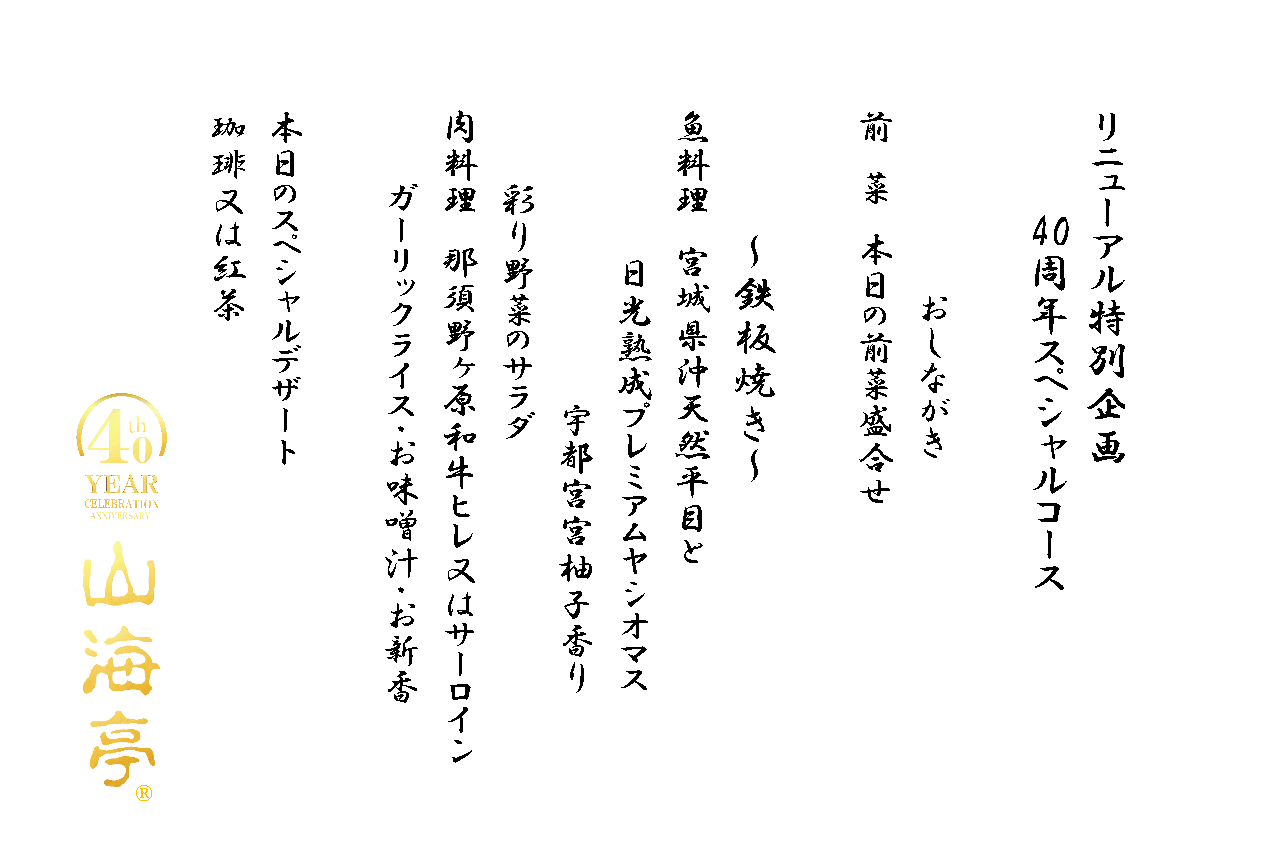 リニューアル特別企画
40周年スペシャルコース
おしながき
前 菜 本日の前菜盛合せ
～鉄板焼き～
魚料理 宮城県沖天然平目と
日光熟成プレミアムヤシオマス
宇都宮宮柚子香り
彩り野菜のサラダ
肉料理 那須野ヶ原和牛ヒレ又はサーロイン
ガーリックライス・お味噌汁・お新香
本日のスペシャルデザート
珈琲又は紅茶
40th
YEAR
CELEBRATION
ANNIVERSARY
山海亭®